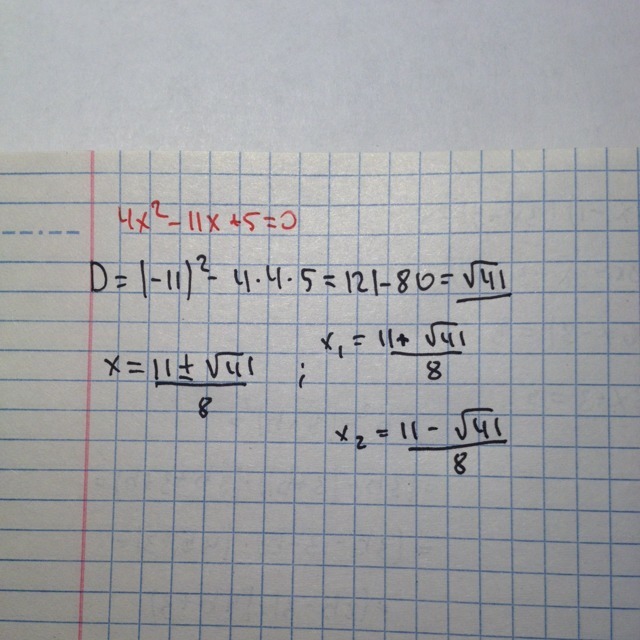 4x² - 11x + 5 = 0
D = (-11)² - 4·4·5 = 121 - 80 = √41
x = (11 ± √41)/8 ; x₁ = (11 + √41)/8
x₂ = (11 - √41)/8